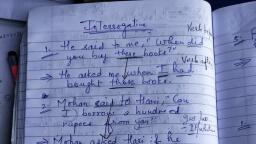 Interrogative
1. He said to me, "When did
you buy these books?"
→ He asked me when I had
bought those books.
2. Mohan said to Hari, "Can
I borrow a hundred
rupees from you?"
→ Mohan asked Hari if he